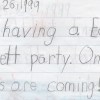 26, 1999
having a E
ett party. On
s are coming!